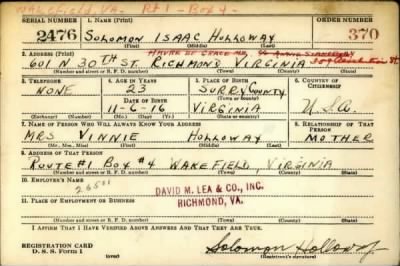 Wakefield, VA. Rt 1 - Box 4
SERIAL NUMBER 1. NAME (Print) ORDER NUMBER
2476 SOLOMON ISAAC HOLLOWAY 370
(First) (Middle) (Last)
2. ADDRESS (Print)
601 N 30TH ST. RICHMOND VIRGINIA
(Number and street or R. F. D. number) (Town) (County) (State)
3. TELEPHONE 4. AGE IN YEARS 5. PLACE OF BIRTH 6. COUNTRY OF CITIZENSHIP
NONE 23 SURRY COUNTY
DATE OF BIRTH (Town or county)
11-6-16 VIRGINIA U.S.A.
(Exchange) (Number) (Mo.) (Day) (Yr.) (State or country)
7. NAME OF PERSON WHO WILL ALWAYS KNOW YOUR ADDRESS 8. RELATIONSHIP OF THAT PERSON
MRS VINNIE HOLLOWAY MOTHER
(Mr., Mrs., Miss) (First) (Middle) (Last)
9. ADDRESS OF THAT PERSON
ROUTE #1 BOX #4 WAKEFIELD, VIRGINIA
(Number and street or R. F. D. number) (Town) (County) (State)
10. EMPLOYER'S NAME
DAVID M. LEA & CO., INC.
11. PLACE OF EMPLOYMENT OR BUSINESS
RICHMOND, VA.
(Number and street or R. F. D. number) (Town) (County) (State)
I AFFIRM THAT I HAVE VERIFIED ABOVE ANSWERS AND THAT THEY ARE TRUE.
REGISTRATION CARD
D. S. S. Form 1 Solomon Holloway
(Registrant's signature)